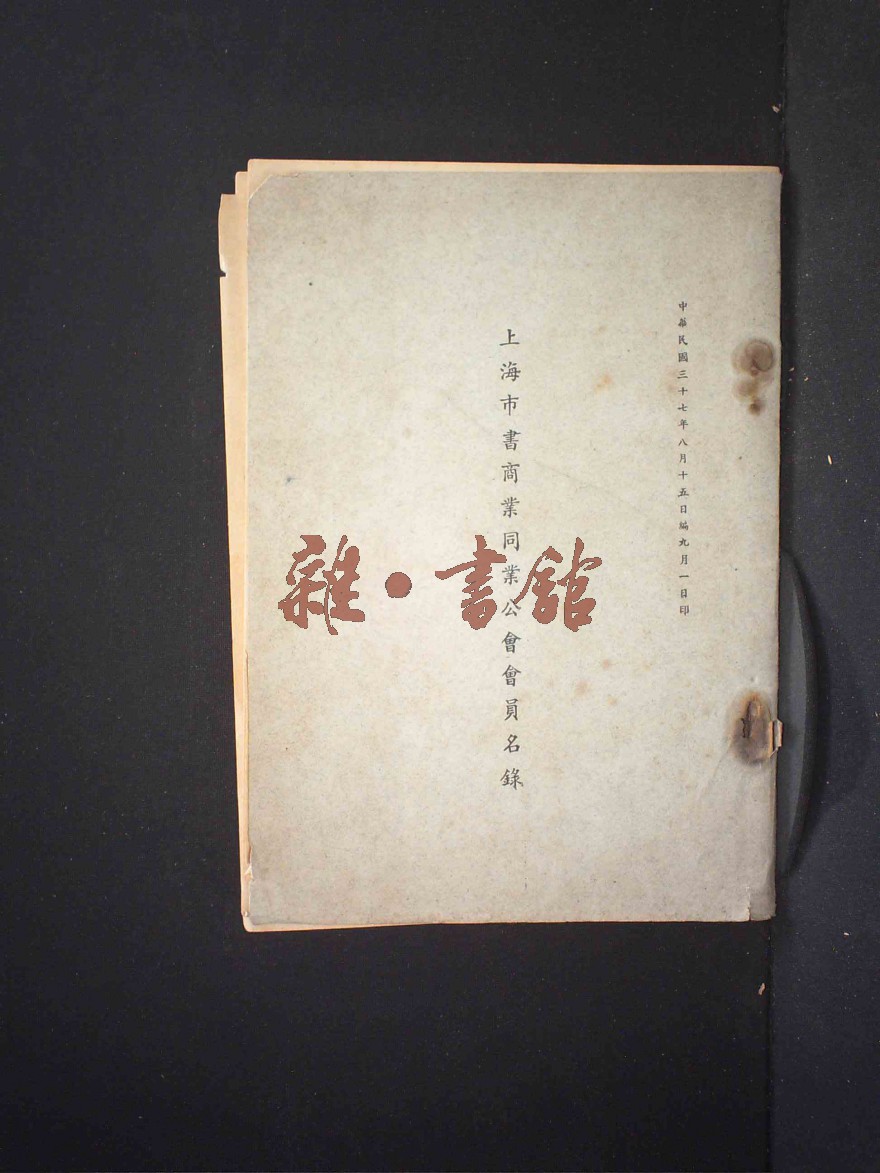 中華民國三十七年八月十五日編九月一日印
上海市書商業同業公會會員名錄
雜·書館